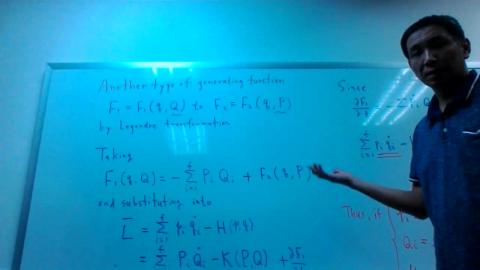 Another type of generating function
F₁ = F₁(q, Q) to F₂ = F₂(q, P)
by Legendre transformation
Taking
F₁(q, Q) = - Σ Pᵢ Qᵢ + F₂(q, P)
and substituting into
L̅ = Σ pᵢ q̇ᵢ - H(p, q)
= Σ Pᵢ Q̇ᵢ - K(P, Q) + ∂F₁
Since
∂F₁
Σ pᵢ q̇ᵢ -
Thus, if
Qᵢ =